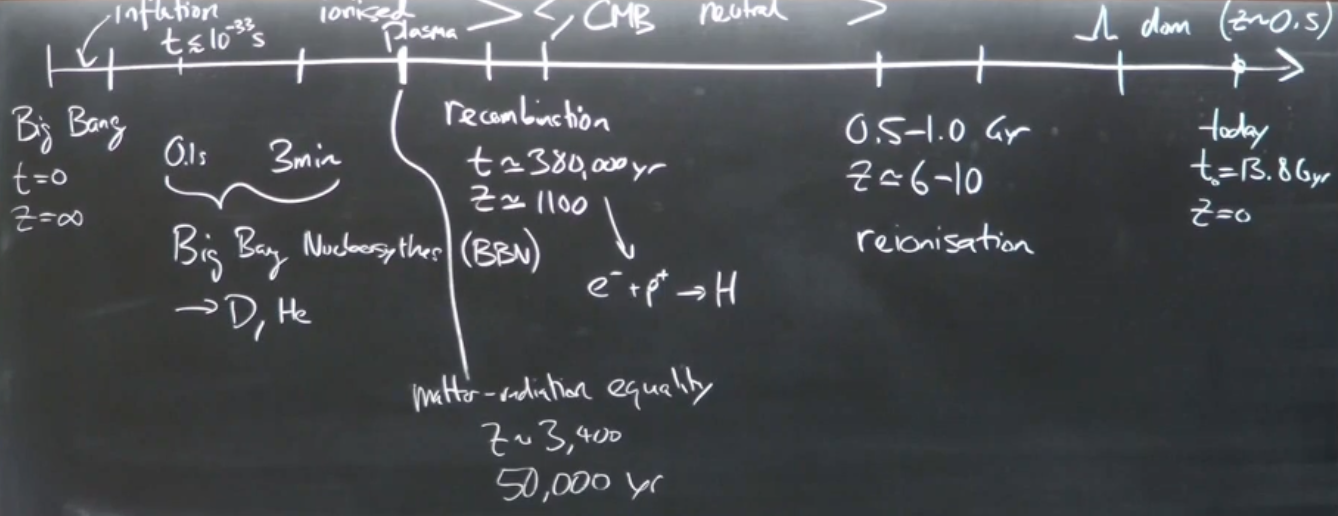 Inflation
t ≲ 10⁻³³ s
ionised
plasma
CMB neutral
Λ dom (z~0.5)
Big Bang
t=0
z=∞
0.1s 3min
Big Bang Nucleosythes (BBN)
→ D, He
recombination
t ≃ 380,000 yr
z ≃ 1100
e⁻ + p⁺ → H
matter-radiation equality
z ~ 3,400
50,000 yr
0.5-1.0 Gr
z ≃ 6-10
reionisation
today
t₀=13.8Gyr
z=0